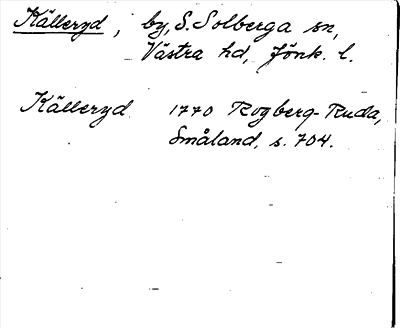 Källeryd, by, S. Solberga sn,
Västra hd, Jönk. l.
Källeryd 1770 Rogberg-Ruda,
Småland, s. 704.